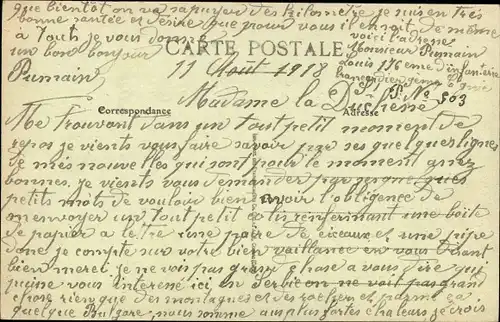 que bientôt on va s'apuyer des kilomètre je suis en très
bonne santée et désire que pour vous il en soit de même
a Tout je vous donne
un bon bonjour
Pumain
voici l'adresse
Monsieur Pumain
Louis 176eme d'infanterie
S. P. No 503
CARTE POSTALE
11 Août 1918
Madame la Duchesne
Correspondance
Adresse
Me trouvant dans un tout petit moment de
repos je vients vous faire savoir par ses quelques lignes
de mes nouvelles qui sont pour le moment assez
bonnes. je vients vous demander par ses quelques
petits mots de vouloir bien avoir l'obligence de
m'envoyer un tout petit colis renfermant une boite
de papier a lettre une paire de ciseaux et une pipe
donc je compte sur votre bien vaillance en vous disant
bien merci je ne vois pas grand chose a vous dire qui
puisse vous intéressé ici en on ne voit pas grand
chose rien que des montagnes et des rochers et parmé ça
quelque Bulgare, nous somme au plus fortes chaleurs je crois